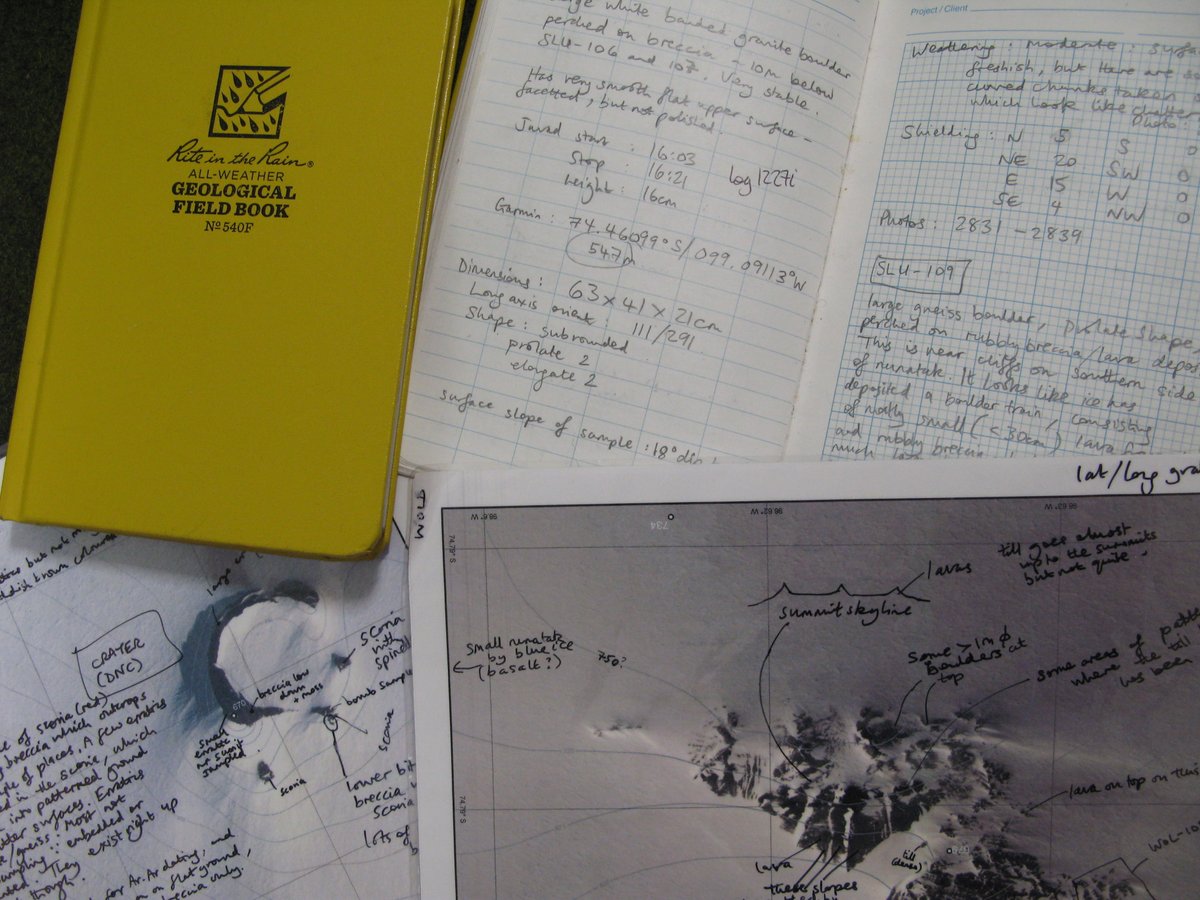 Rite in the Rain®
ALL-WEATHER
GEOLOGICAL
FIELD BOOK
Nº 540F
white banded granite boulder
perched on breccia - 10m below
SLU-106 and 107. Very stable.
Has very smooth flat upper surface -
facetted, but not polished.
Javad start : 16:03
Stop 16:21 log1227i
height: 16cm
Garmin: 74.46099°S/099.09113°W
547m
Dimensions: 63x41x21cm
Long axis orient 111/291
Shape: subrounded
prolate 2
elongate 2
surface slope of sample: 18°
Project / Client
Weathering: moderate:
freshish, but there are
curved chunks taken
which look like
Shielding: N 5 S 0
NE 20 SW 0
E 15 W 0
SE 4 NW 0
Photos: 2831-2839
SLU-109
large gneiss boulder, prolate shape
perched on rubbly breccia/lava
This is near cliffs on southern side
of nunatak. It looks like ice has
deposited a boulder train, consisting
of mostly small (<30cm) lava
and rubbly breccia
lat/long
CRATER
(DNC)
breccia low
down
+ moss
670
small
erratic
not
sampled
scoria
scoria
with
bomb sample
scoria
lower bit
breccia
scoria
lots of
of scoria (red)
breccia which outcrops
of places. A few erratics
in the scoria, which
into patterned ground
surfaces. Erratics
/gneiss. Most not
sampling: embedded or
They exist right up
though.
for Ar.Ar dating, and
on flat ground,
breccia only.
98.6° W
734
98.62° W
98.63° W
74.79° S
74.79° S
small nunatak
by blue ice
(basalt?)
750?
lavas
summit skyline
till goes almost
up to the summits
but not quite.
Some >1m ϕ
boulders at
top
some areas of
where the till
has been
lava on top on this
till
lava
these slopes